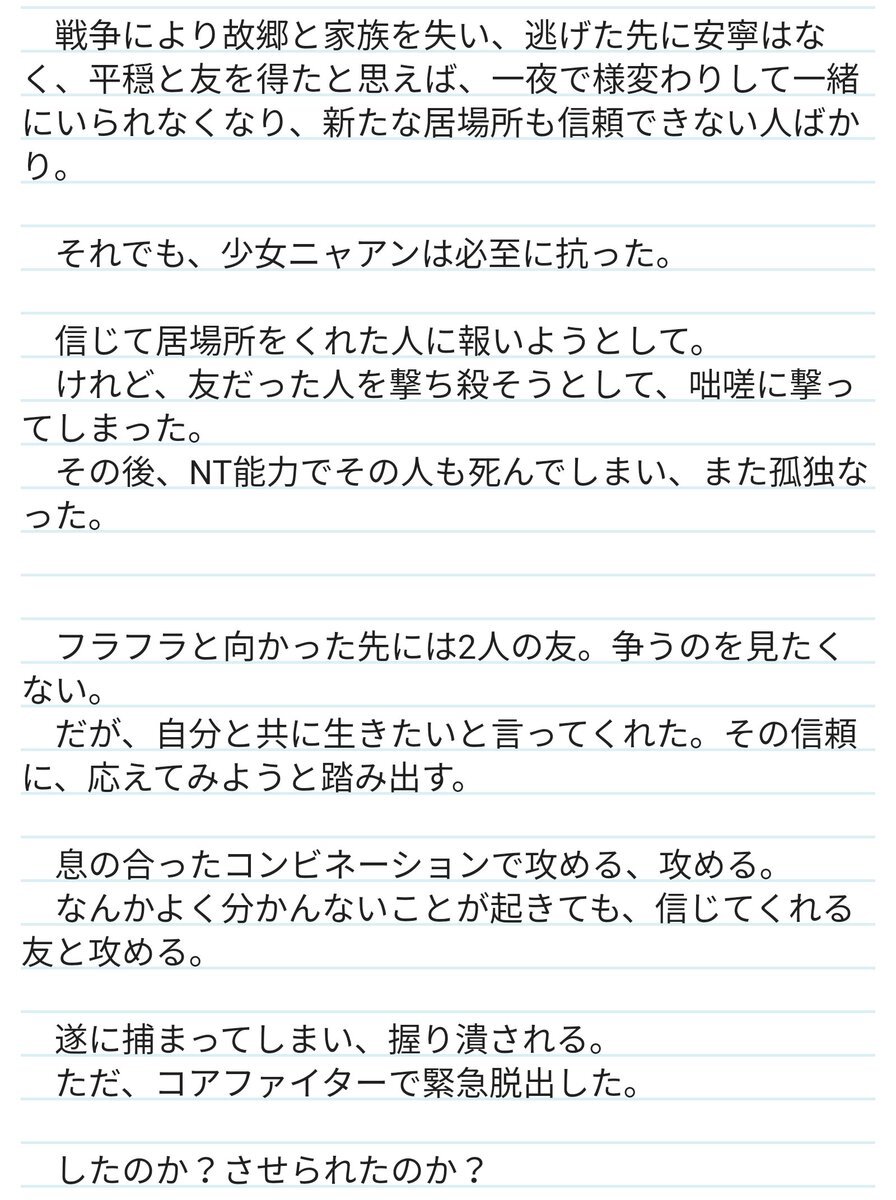 戦争により故郷と家族を失い、逃げた先に安寧はな
く、平穏と友を得たと思えば、一夜で様変わりして一緒
にいられなくなり、新たな居場所も信頼できない人ばか
り。
それでも、少女ニャアンは必至に抗った。
信じて居場所をくれた人に報いようとして。
けれど、友だった人を撃ち殺そうとして、咄嗟に撃っ
てしまった。
その後、NT能力でその人も死んでしまい、また孤独な
った。
フラフラと向かった先には2人の友。争うのを見たく
ない。
だが、自分と共に生きたいと言ってくれた。その信頼
に、応えてみようと踏み出す。
息の合ったコンビネーションで攻める、攻める。
なんかよく分かんないことが起きても、信じてくれる
友と攻める。
遂に捕まってしまい、握り潰される。
ただ、コアファイターで緊急脱出した。
したのか？させられたのか？